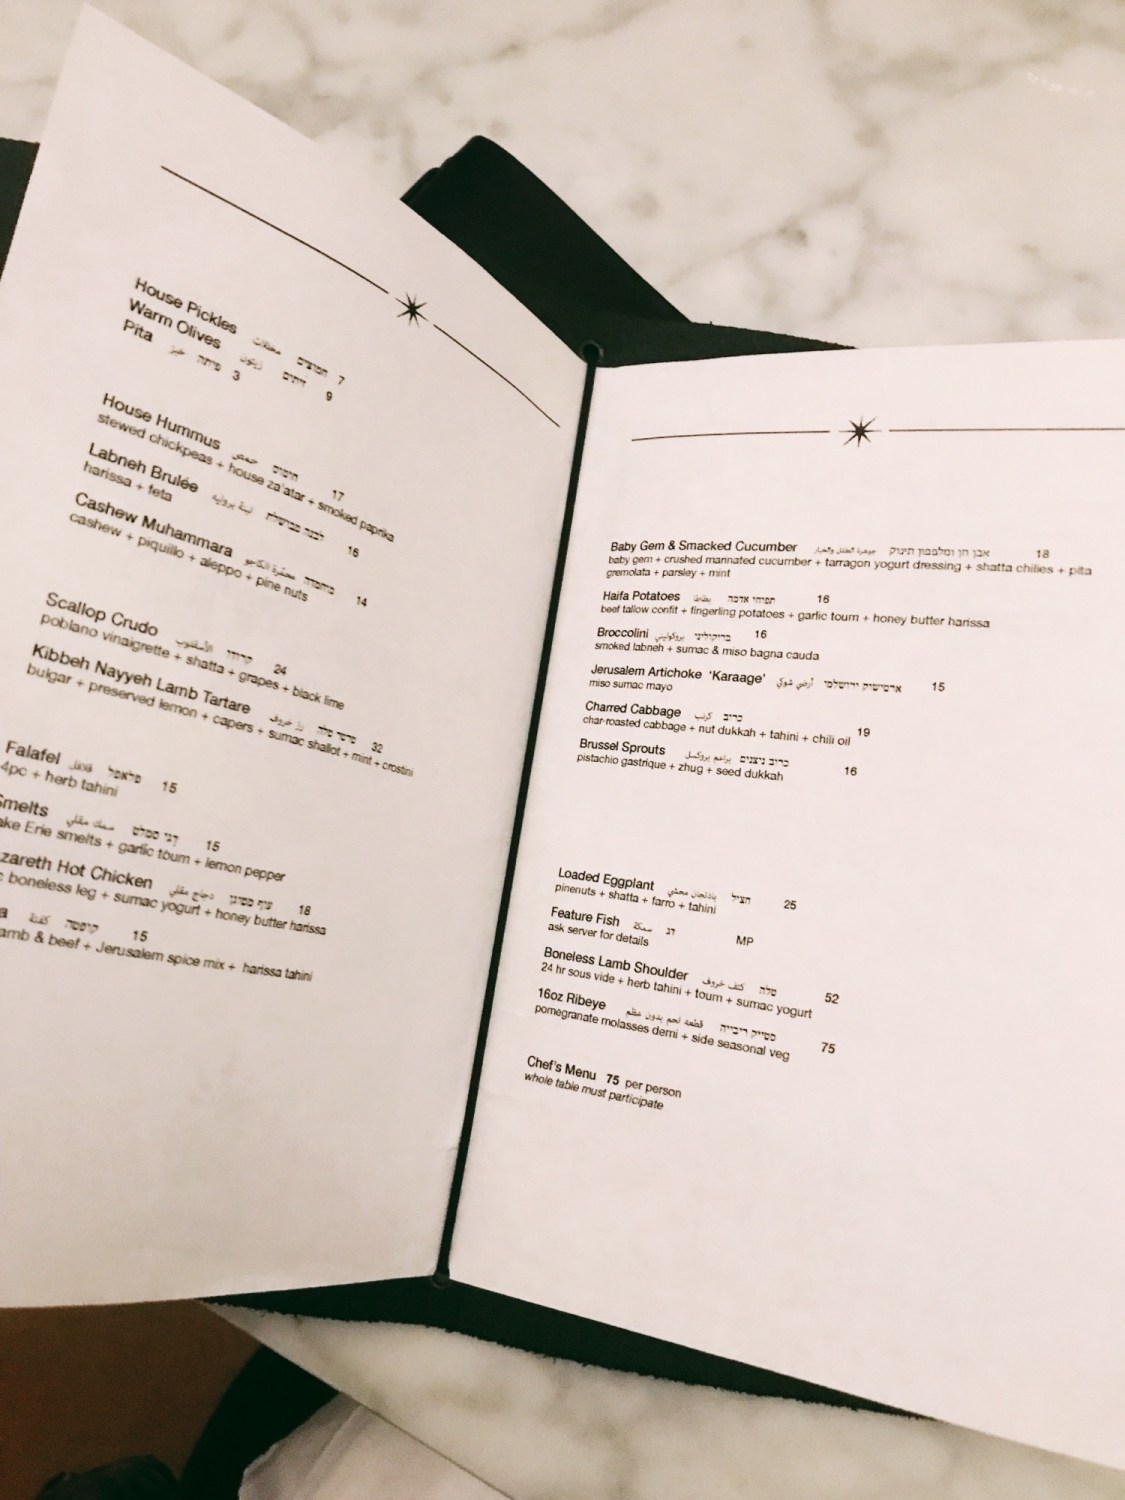 House Pickles مخللات חמוצים 7
Warm Olives زيتون זיתים 9
Pita خبز פיתה 3
House Hummus حمص חומוס 17
stewed chickpeas + house za'atar + smoked paprika
Labneh Brulée لبنة بروليه לבנה מברושלת 16
harissa + feta
Cashew Muhammara محمّرة الكاجو מוחמרה 14
cashew + piquillo + aleppo + pine nuts
Scallop Crudo קרודו 24
poblano vinaigrette + shatta + grapes + black lime
Kibbeh Nayyeh Lamb Tartare טרטר טלה 32
bulgar + preserved lemon + capers + sumac shallot + mint + crostini
Falafel فلافل פלאפל 15
4pc + herb tahini
Smelts سمك مقلي דגי סמלט 15
ake Erie smelts + garlic toum + lemon pepper
zareth Hot Chicken دجاج مقلي עוף מטוגן 18
boneless leg + sumac yogurt + honey butter harissa
a كفتة קופטה 15
amb & beef + Jerusalem spice mix + harissa tahini
Baby Gem & Smacked Cucumber אבן חן ומלפפון תינוק 18
baby gem + crushed marinated cucumber + tarragon yogurt dressing + shatta chilies + pita
gremolata + parsley + mint
Haifa Potatoes بطاطا תפוחי אדמה 16
beef tallow confit + fingerling potatoes + garlic toum + honey butter harissa
Broccolini بروكوليني ברוקוליני 16
smoked labneh + sumac & miso bagna cauda
Jerusalem Artichoke 'Karaage' أرضي شوكي ארטישוק ירושלמי 15
miso sumac mayo
Charred Cabbage كرنب כרוב 19
char-roasted cabbage + nut dukkah + tahini + chili oil
Brussel Sprouts براعم بروكسل כרוב ניצנים 16
pistachio gastrique + zhug + seed dukkah
Loaded Eggplant باذنجان محشي חציל 25
pinenuts + shatta + farro + tahini
Feature Fish سمكة דג MP
ask server for details
Boneless Lamb Shoulder كتف خروف טלה 52
24 hr sous vide + herb tahini + toum + sumac yogurt
16oz Ribeye قطعة لحم بدون عظم סטייק ריבייה 75
pomegranate molasses demi + side seasonal veg
Chef's Menu 75 per person
whole table must participate